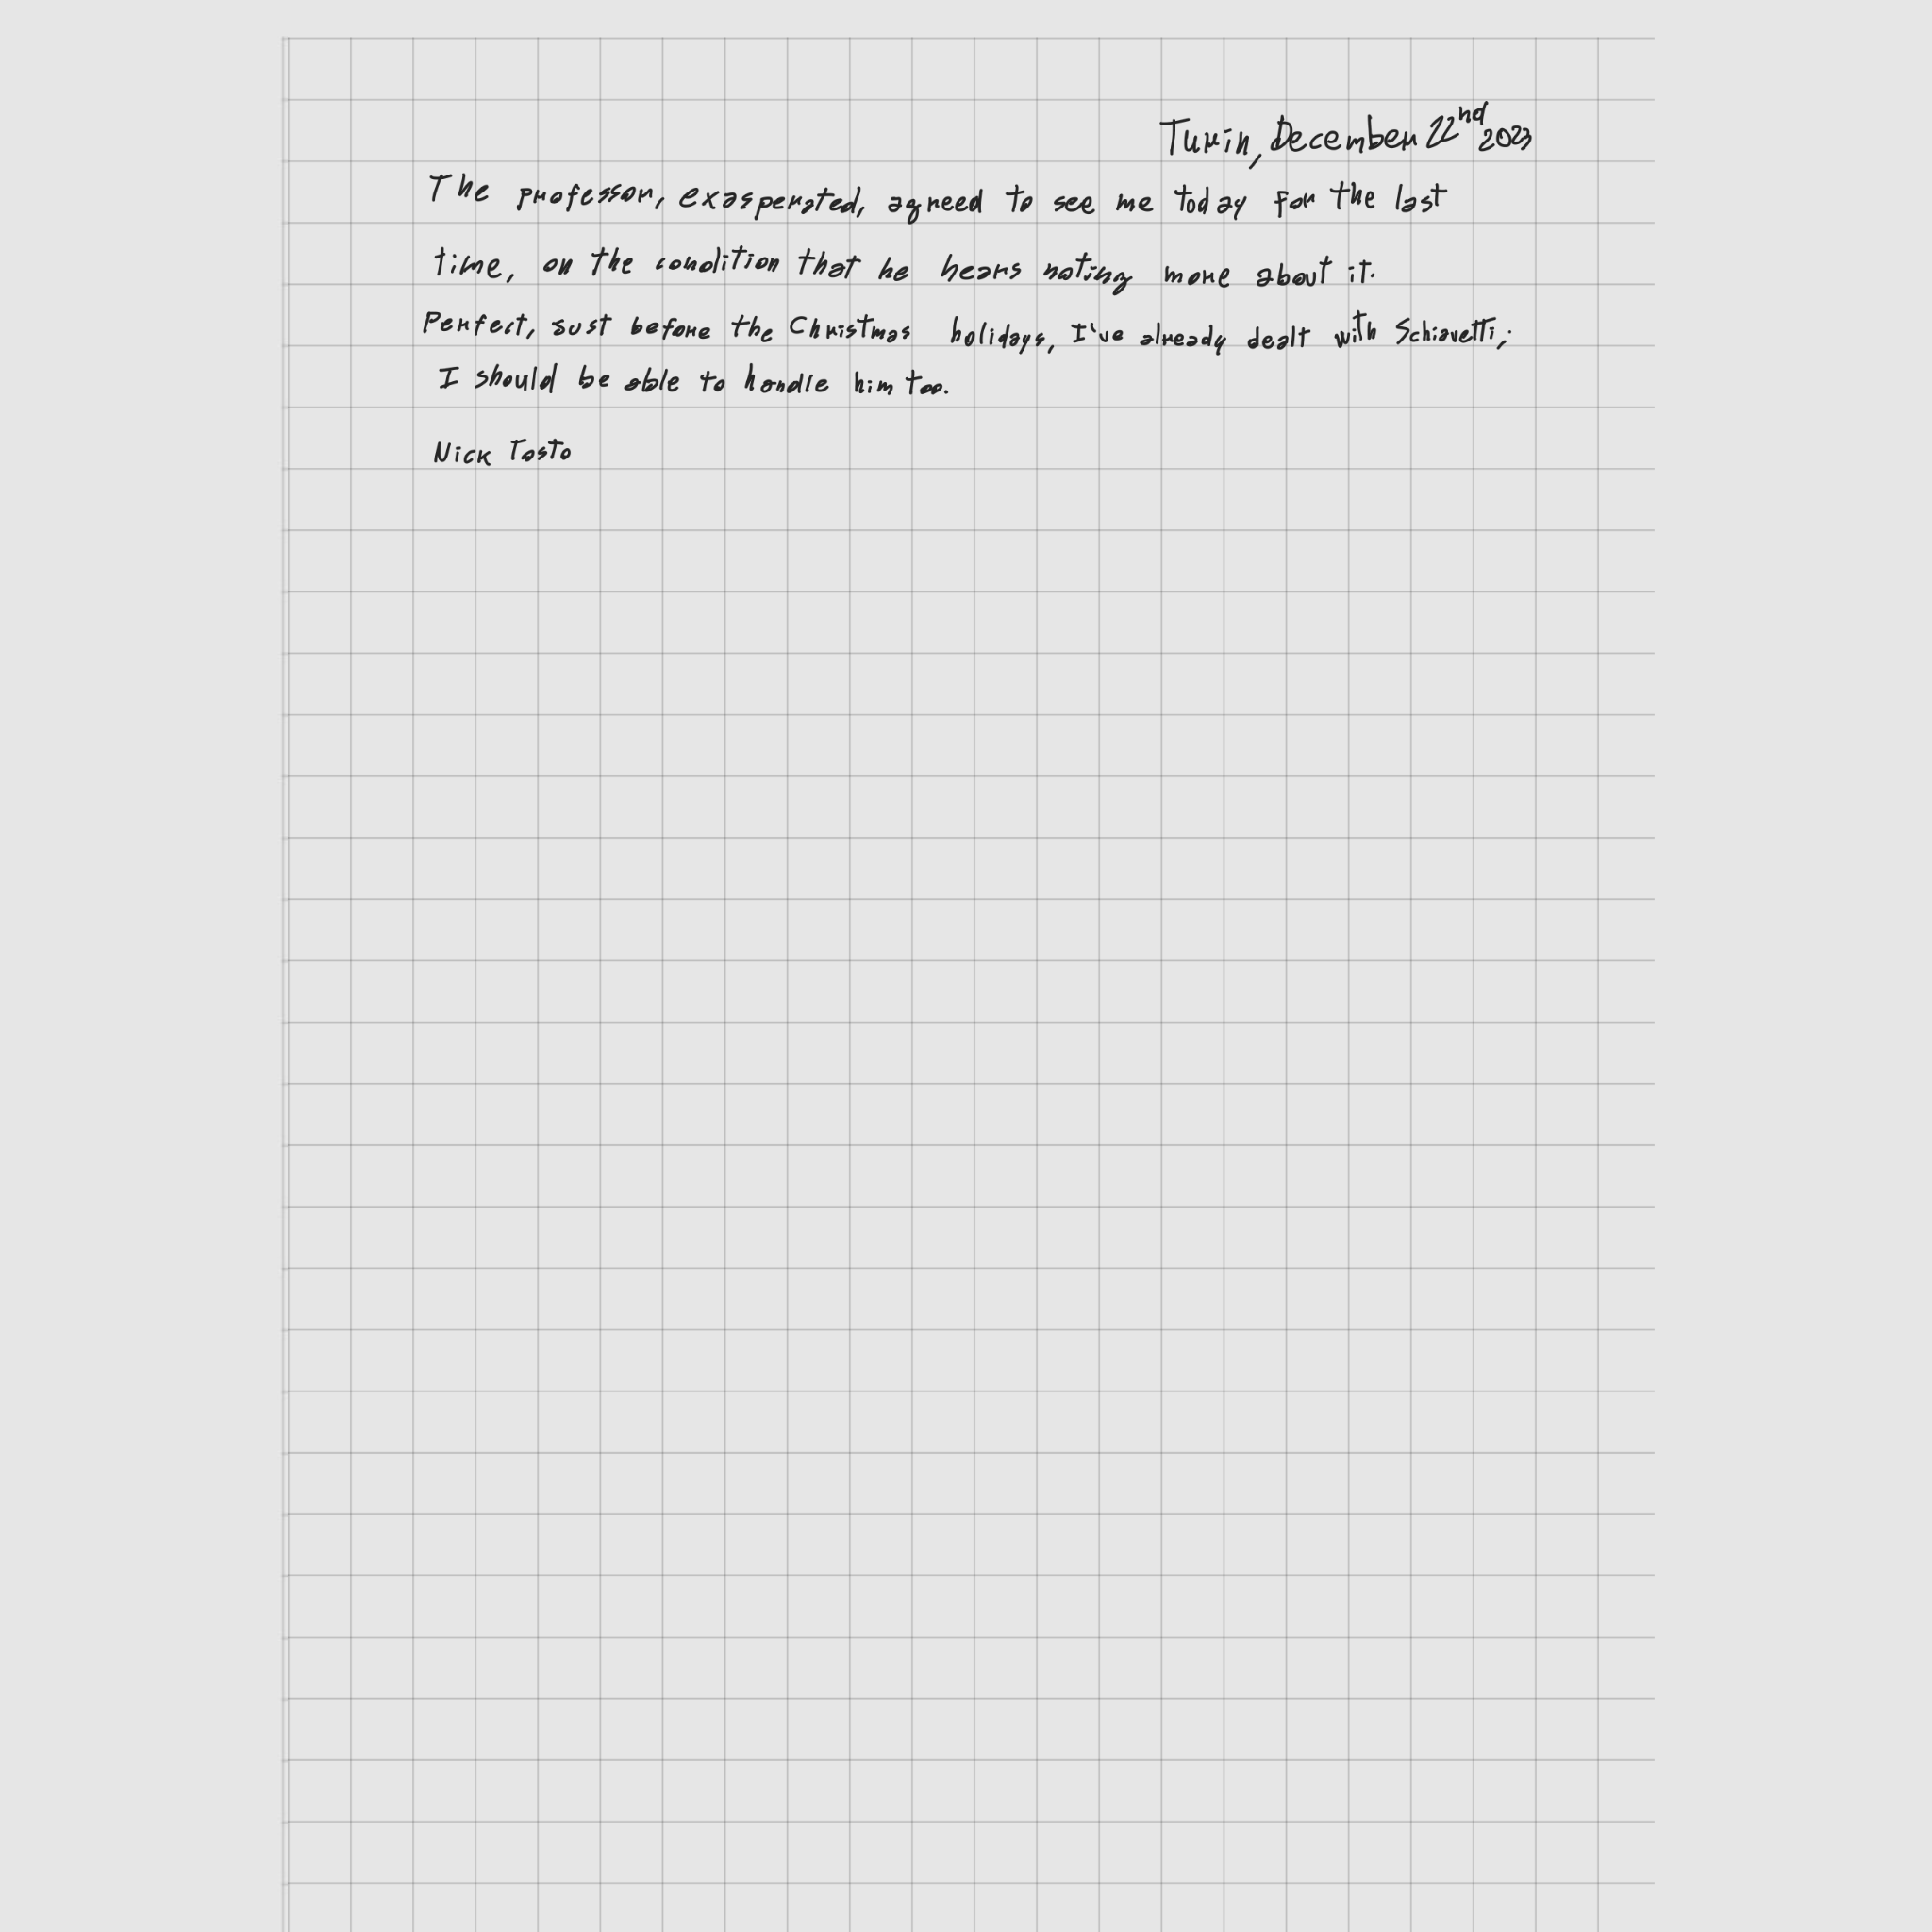 Turin, December 22nd 2023
The professor, exasperated, agreed to see me today for the last
time, on the condition that he hears noting more about it.
Perfect, sust before the Christmas holidays, I've already dealt with Schiavetti;
I should be able to handle him too.
Nick Tosto